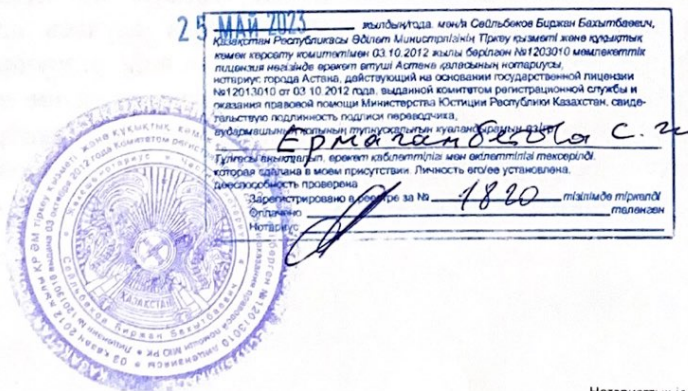 25 МАЙ 2023 жылдың/года. мен/я Сейльбеков Биржан Бахытбаевич,
Қазақстан Республикасы Әділет Министрлігінің Тіркеу қызметі және құқықтық
көмек көрсету комитетімен 03.10.2012 жылы берілген №1203010 мемлекеттік
лицензия негізінде әрекет етуші Астана қаласының нотариусы,
нотариус города Астана, действующий на основании государственной лицензии
№12013010 от 03 10.2012 года, выданной комитетом регистрационной службы и
оказания правовой помощи Министерства Юстиции Республики Казахстан, свиде-
тельствую подлинность подписи переводчика,
аудармашының қолының түпнұсқалығын куаландырамын
Ермаганбетова С.
анықталып, әрекет қабілеттілігі мен өкілеттілігі тексерілді.
которая сделана в моем присутствии. Личность его/ее установлена.
дееспособность проверена
Зарегистрировано в реестре за № 1820 тізілімде тіркелді
Оплачено төленген
Нотариус
ҚАЗАҚСТАН